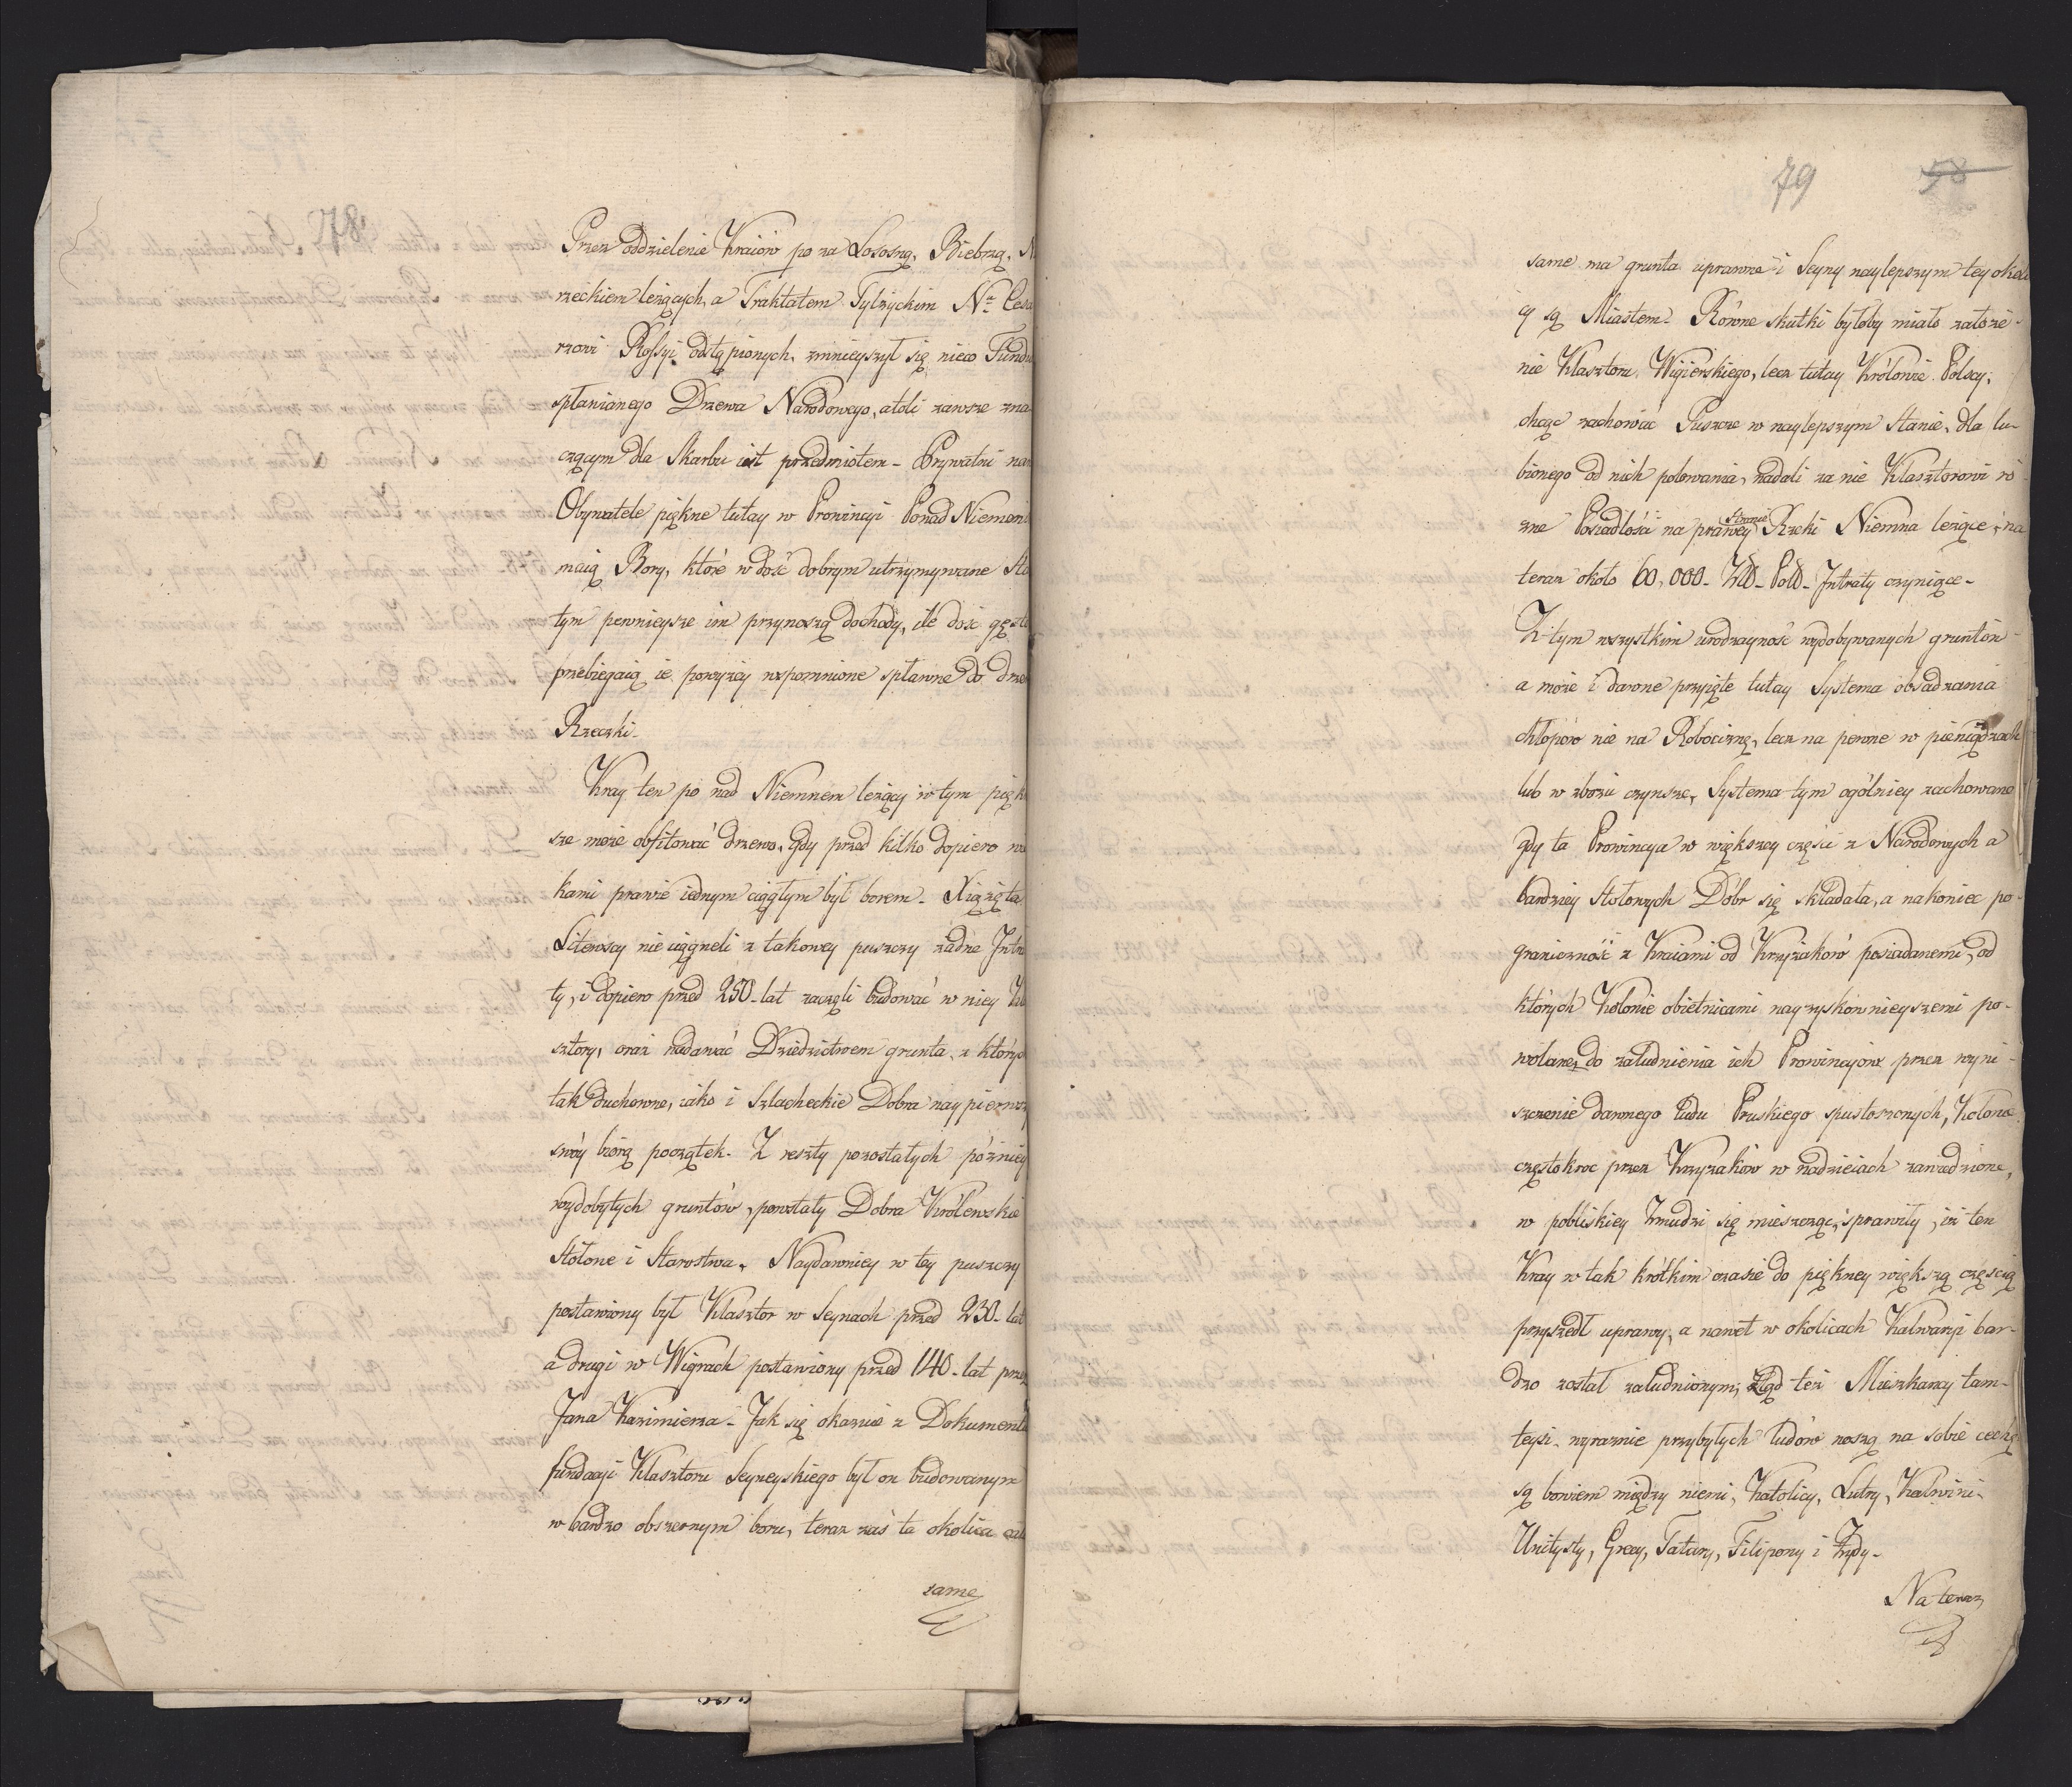 78
Przez oddzielenie Kraiów po za Łososzą, Biebrzą, N
rzeckiem leżących, a Traktatem Tylżyckim Nr. Cesa
rzowi Rossyi odstąpionych, zmnieyszył się nieco Fundu
spławianego Drzewa Narodowego, atoli zawsze zna
czącym dla Skarbu iest przedmiotem - Prywatni na
Obywatele piękne tutay w Prowincyi Ponad Niemeń
maią Bory, które w dość dobrym utrzymywane Sta
tym pewnieysze im przynoszą dochody, ile dość gęsto
przebiegaią ie powyżey wspomnione spławne do drze
Rzeczki.
Kray ten po nad Niemnem leżący w tym pięk
sze może obfitować drzewo, gdy przed kilko dopiero wie
kami prawie iednym ciągłym był borem - Xiążęta
Litewscy nie ciągneli z takowey puszczy żadne Intra
ty, i dopiero przed 250 - lat zaczęli budować w niey Kla
sztory, oraz nadawać Dziedzictwem grunta, z który
tak duchowne, iako i Szlacheckie Dobra nay pierwsz
swóy biorą początek - Z reszty pozostałych później
wydobytych gruntów, powstały Dobra Królewskie
Stołowe i Starostwa. Naydawniey w tey puszczy
postawiony był Klasztor w Seynach przed 230 - lat
a drugi w Wigrach postawiony przed 140 - lat przez
Jana Kazimierza - Jak się okazuie z Dokumentu
fundacyi Klasztoru Seyneyskiego był on budowanym
w bardzo obszernym boru, teraz zaś ta okolica cał
same
79 58
same ma grunta uprawne i Seyny naylepszym tey okoli
cy są Miastem - Równe skutki byłoby miało założe-
nie Klasztoru Wigierskiego, lecz tutay Królowie Polscy,
chcąc zachować Puszcze w naylepszym Stanie, dla lu-
bionego od nich polowania, nadali za nie Klasztorowi ró
żne Posiadłości na prawey Stronie Rzeki Niemna leżące, na
teraz około 60,000 - Złł - Poll - Intraty czyniące -
Z tym wszystkim urodzayność wydobywanych gruntów -
a może i dawne przyięte tutay Systema obsadzania
chłopów nie na Robociznę, lecz na pewne w pieniądzach
lub w zbożu czynsze, Systema tym ogólniey zachowane
gdy ta Prowincya w większey części z Narodowych a
bardziey Stołowych Dóbr się składała, a nakoniec po-
graniczność z Kraiami od Krzyżaków posiadanemi, od
których Kolonie obietnicami nayzyskownieyszemi po-
wołane, do zaludnienia ich Prowincyów przez wyni-
szczenie dawnego ludu Pruskiego spustoszonych, Kolonie
częstokroć przez Krzyżaków w nadzieiach zawiedzione,
w pobliskiey Żmudzi się mieszcząc, sprawiły, iż ten
Kray w tak krótkim czasie do piękney większą częscią
przyszedł uprawy, a nawet w okolicach Kalwaryi bar-
dzo został zaludnionym, Ztąd też Mieszkańcy tam-
teysi - wyraznie przybyłych ludów noszą na sobie cechę
są bowiem między niemi, Katolicy, Lutry, Kalwini,
Unitysty, Grecy, Tatary, Filipony i Żydy -
Na teraz